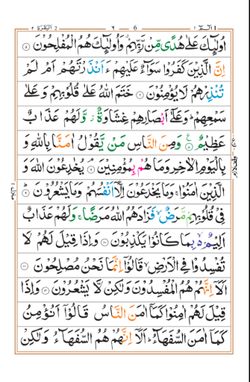 اُولٰٓئِكَ عَلٰى هُدًى مِّنْ رَّبِّهِمْ وَاُولٰٓئِكَ هُمُ الْمُفْلِحُوْنَ
اِنَّ الَّذِيْنَ كَفَرُوْا سَوَآءٌ عَلَيْهِمْ ءَاَنْذَرْتَهُمْ اَمْ لَمْ
تُنْذِرْهُمْ لَا يُؤْمِنُوْنَ خَتَمَ اللّٰهُ عَلٰى قُلُوْبِهِمْ وَعَلٰى
سَمْعِهِمْ وَعَلٰٓى اَبْصَارِهِمْ غِشَاوَةٌ وَّلَهُمْ عَذَابٌ
عَظِيْمٌ وَمِنَ النَّاسِ مَنْ يَّقُوْلُ اٰمَنَّا بِاللّٰهِ وَ
بِالْيَوْمِ الْاٰخِرِ وَمَا هُمْ بِمُؤْمِنِيْنَ يُخٰدِعُوْنَ اللّٰهَ وَ
الَّذِيْنَ اٰمَنُوْا وَمَا يَخْدَعُوْنَ اِلَّآ اَنْفُسَهُمْ وَمَا يَشْعُرُوْنَ
فِيْ قُلُوْبِهِمْ مَّرَضٌ فَزَادَهُمُ اللّٰهُ مَرَضًا وَلَهُمْ عَذَابٌ
اَلِيْمٌ بِمَا كَانُوْا يَكْذِبُوْنَ وَاِذَا قِيْلَ لَهُمْ لَا
تُفْسِدُوْا فِى الْاَرْضِ قَالُوْٓا اِنَّمَا نَحْنُ مُصْلِحُوْنَ
اَلَآ اِنَّهُمْ هُمُ الْمُفْسِدُوْنَ وَلٰكِنْ لَّا يَشْعُرُوْنَ وَاِذَا
قِيْلَ لَهُمْ اٰمِنُوْا كَمَآ اٰمَنَ النَّاسُ قَالُوْٓا اَنُؤْمِنُ
كَمَآ اٰمَنَ السُّفَهَآءُ اَلَآ اِنَّهُمْ هُمُ السُّفَهَآءُ وَلٰكِنْ